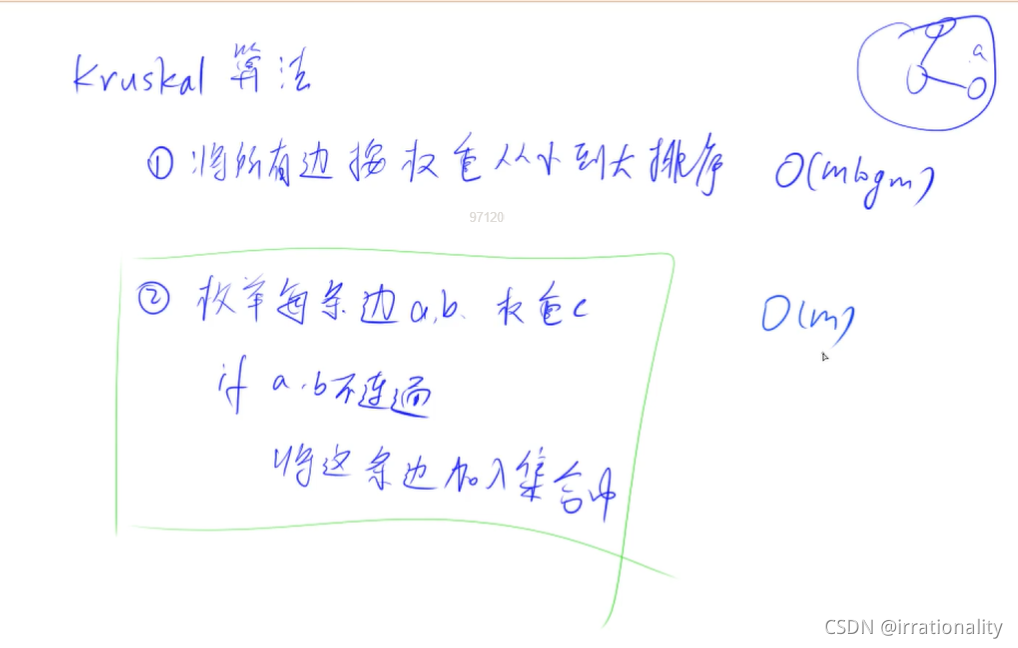 Kruskal 算法
a
① 将所有边按权重从小到大排序 O(mlogm)
97120
② 枚举每条边a,b. 权重c O(m)
if a.b不连通
将这条边加入集合中
CSDN @irrationality